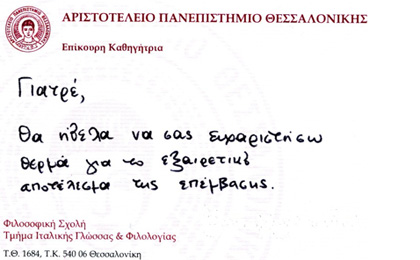 ΑΡΙΣΤΟΤΕΛΕΙΟ ΠΑΝΕΠΙΣΤΗΜΙΟ ΘΕΣΣΑΛΟΝΙΚΗΣ
Επίκουρη Καθηγήτρια
Γιατρέ,
Θα ήθελα να σας ευχαριστήσω
θερμά για το εξαιρετικό
αποτέλεσμα της επέμβασης.
Φιλοσοφική Σχολή
Τμήμα Ιταλικής Γλώσσας & Φιλολογίας
Τ.Θ. 1684, Τ.Κ. 540 06 Θεσσαλονίκη